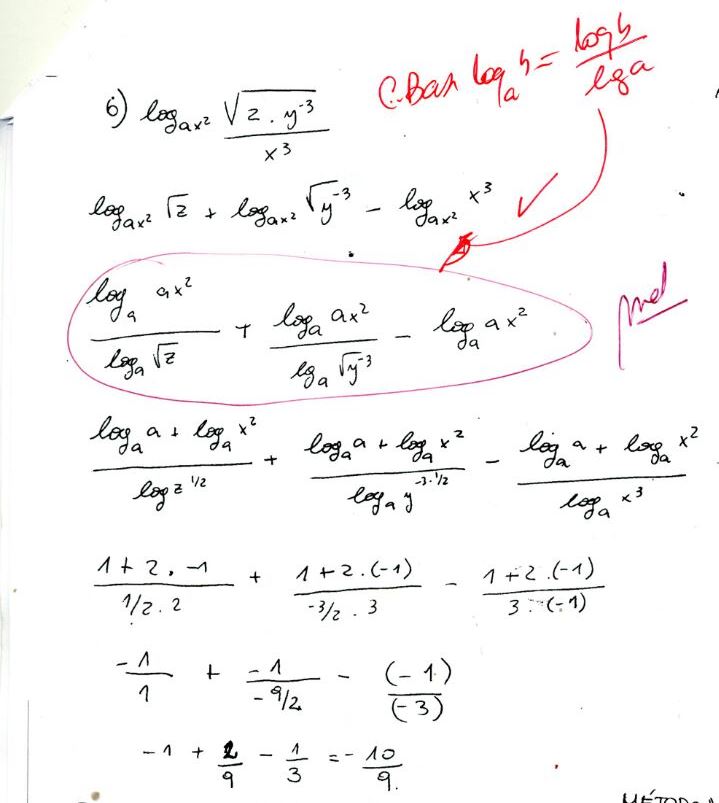 C.Bas log_a b = log b / log a
6) log_{ax²} √(z . y⁻³) / x³
log_{ax²} √z + log_{ax²} √y⁻³ - log_{ax²} x³ ✓
log_a ax² / log_a √z + log_a ax² / lg_a √y⁻³ - log_a ax²
log_a a + log_a x² / log z^{1/2} + log_a a + log_a x² / log_a y^{-3·1/2} - log_a a + log_a x² / log_a x³
1 + 2 . -1 / 1/2 . 2 + 1 + 2 . (-1) / -3/2 . 3 - 1 + 2 . (-1) / 3 . (-1)
-1 / 1 + -1 / -9/2 - (-1) / (-3)
-1 + 2/9 - 1/3 = - 10/9.